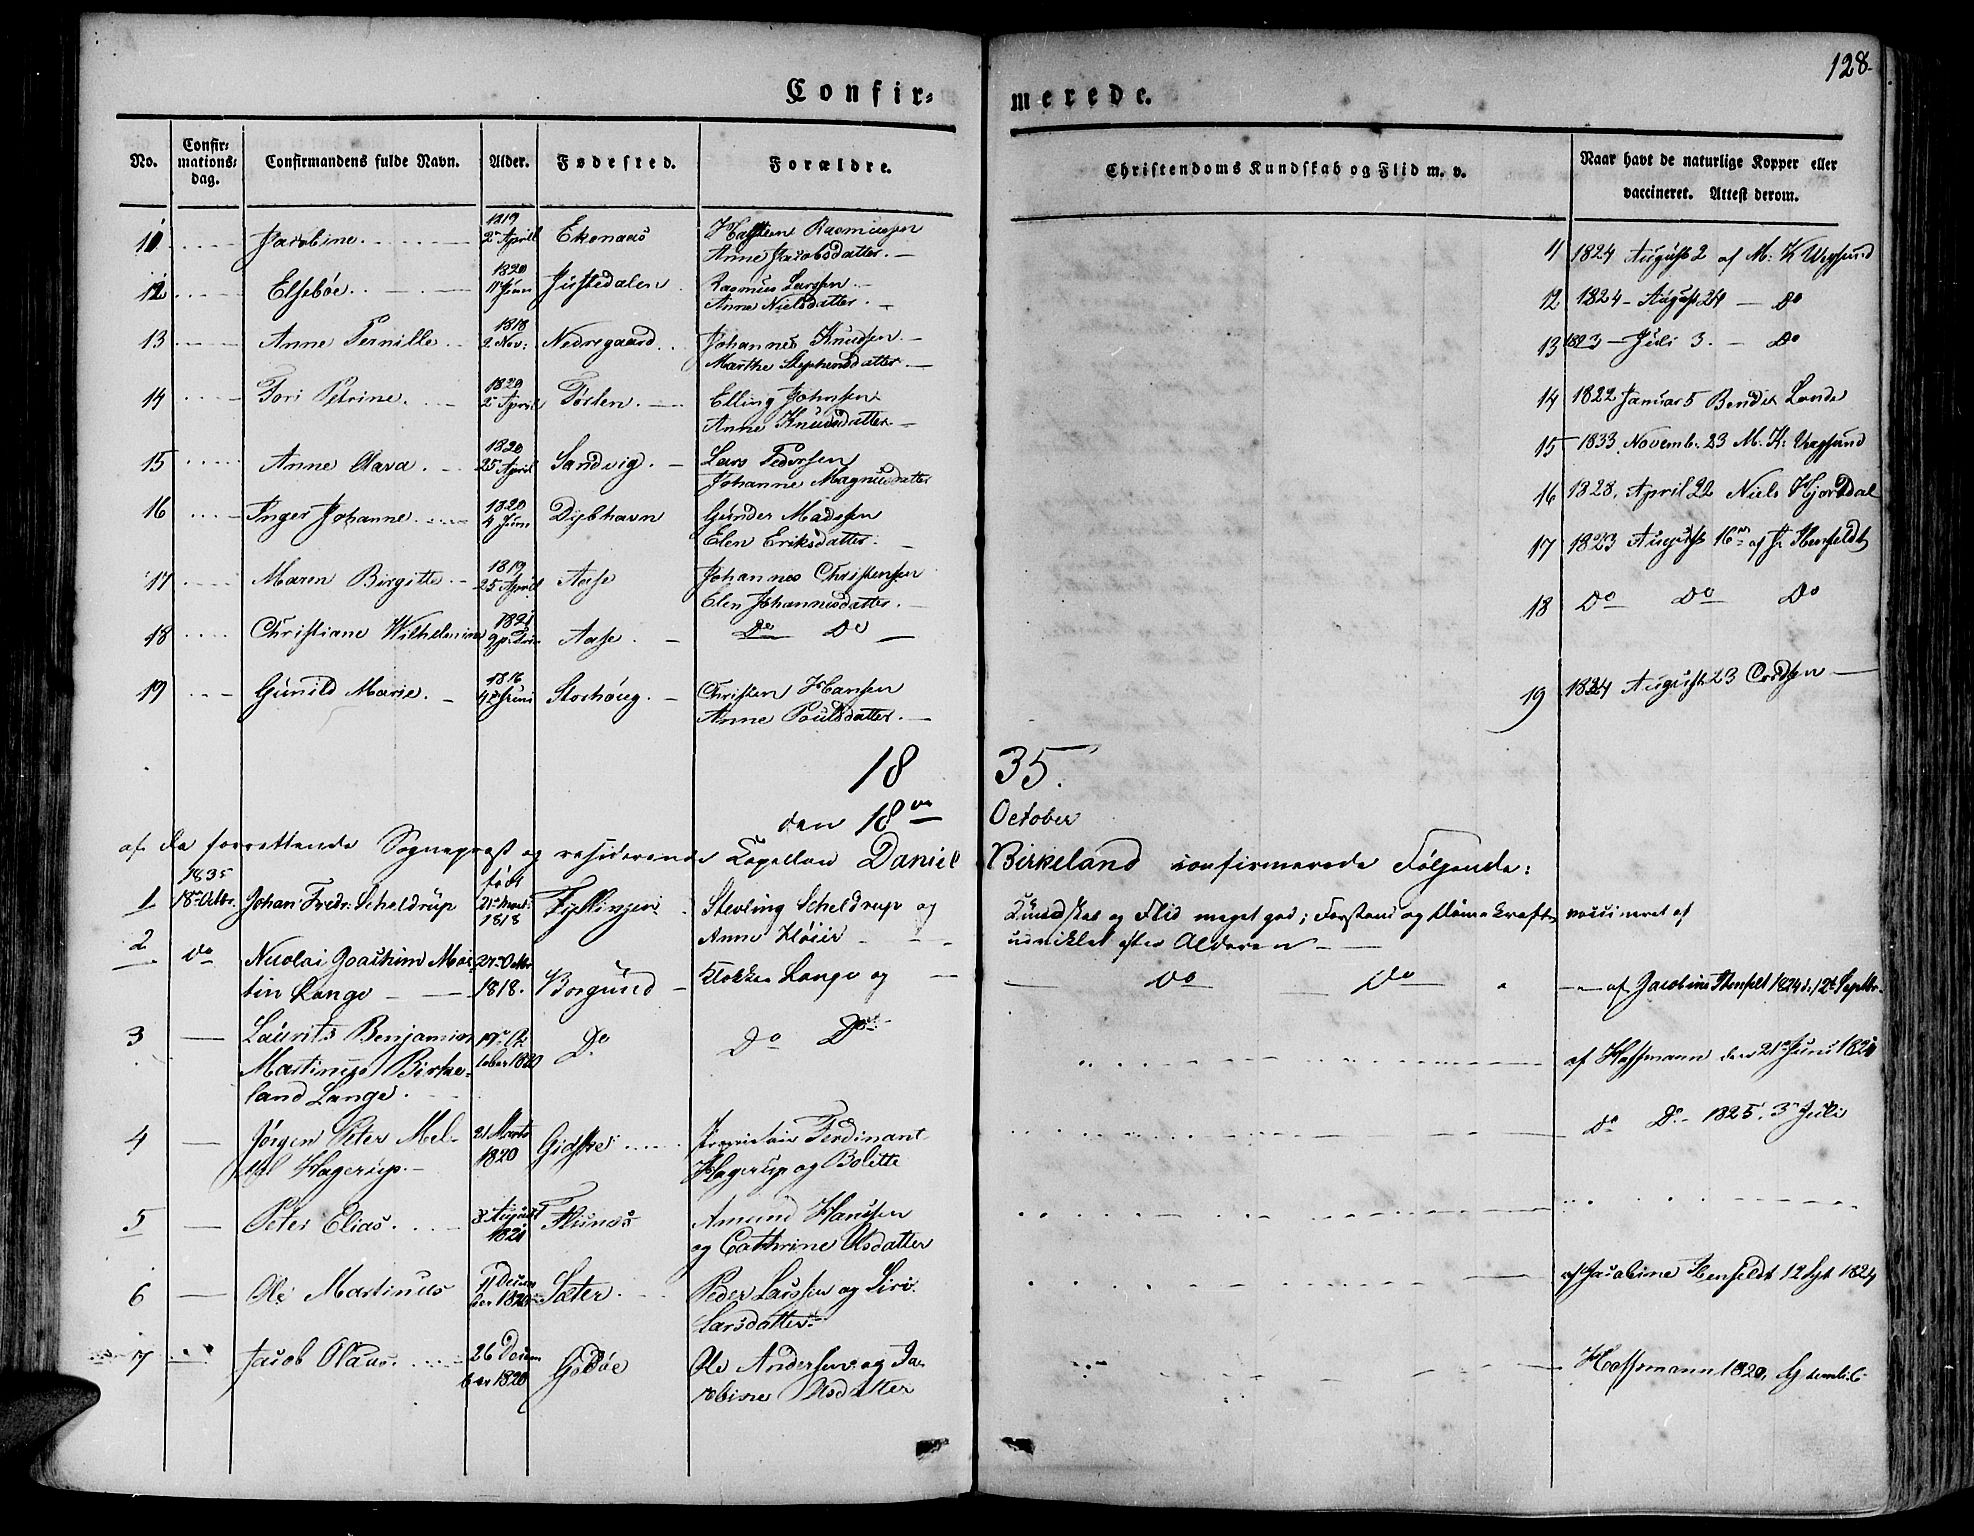 128.
Confir-
merede.
No.
Confir-
mations-
dag.
Confirmandens fulde Navn.
Alder.
Fødested.
Forældre.
Christendoms Kundskab og Flid m. v.
Naar havt de naturlige Kopper eller
vaccineret. Attest derom.
11 Jacobine. 1819 2 April Ekenaes Rasmussen
Anne Jacobsdatter.
11 1824 August 2 af M: K Vegsund
12 Elsebøe. 1820 11 Juni Justedalen Rasmus Larssen
Anne Nielsdatter.
12 1824 - August 24 - Do
13 Anne Pernille 1818 2 Nov: Nedregaard Johannes Knudsen
Marthe Stephensdatter.
13 1823 - Juli 3. - Do
14 Tori Petrine. 1820 2 April Tøsten. Elling Johnsen
Anne Knudsdatter.
14 1822 Januar 5 Bendix Lande
15 Anne Olava. 1820 25 April Sandvig. Lars Pedersen
Johanne Magnusdatter
15 1833 Novemb. 23 M. K. Vegsund
16 Inger Johanne. 1820 4 Juni Dybhavn Gunder Madssen
Elen Eriksdatter.
16 1828, April 22 Niels Hjortdal
17 Maren Birgitte 1819 25 April Aase Johannes Christensen
Elen Johannesdatter.
17 1823 August 16 af J. Stenfeldt
18 Christiane Wilhelmine 1821 Aase. Do Do
18 Do Do Do
19 Gunild Marie. 1816 Juni Storhoug. Christen Hansen
Anne Poulsdatter.
19 1824 August 23 Cordsen
18 35.
den 18de October
af da forrettende Sognepræst og residerende Capellan Daniel Birkeland confirmerede Følgende:
1 1835 18de Octbr. Johan Fredr: Scheldrup født 21 Marts 1818 Fyllingen Stevling Scheldrup og
Anne Høier
Kundskab og Flid meget god; Forstand og Dømmekraft vaccineret af
udviklet efter Alderen
2 do Nicolai Joachim Mar-
tin Lange 27 Octbr 1818. Borgund Klokker Lange og
Do Do af Jacobine Stenfelt 1824 d. 12te Septbr.
3 Laurits Benjamin
Martinus Birke-
land Lange. 19 October 1820 Do Do Do
af Hoffmann den 21de Juni 1821
4 Jørgen Peter Mel-
Hagerup. 21 Marts 1820 Gidske Ferdinant
Hagerup og Bolette
do Do 1825. 3 Juli
5 Peter Elias. 8 August 1821 Flisnes Amund Hanssen
og Cathrine Olsdatter
6 Ole Martinus 11 December 1820 Sæter Peder Larssen og Siri
Larsdatter
af Jacobine Stenfeldt 12 Spt 1824
7 Jacob Olaus. 26 December 1820 Godøe Ole Andersen og Ja-
cobine Olsdatter
Hoffmann 1820,